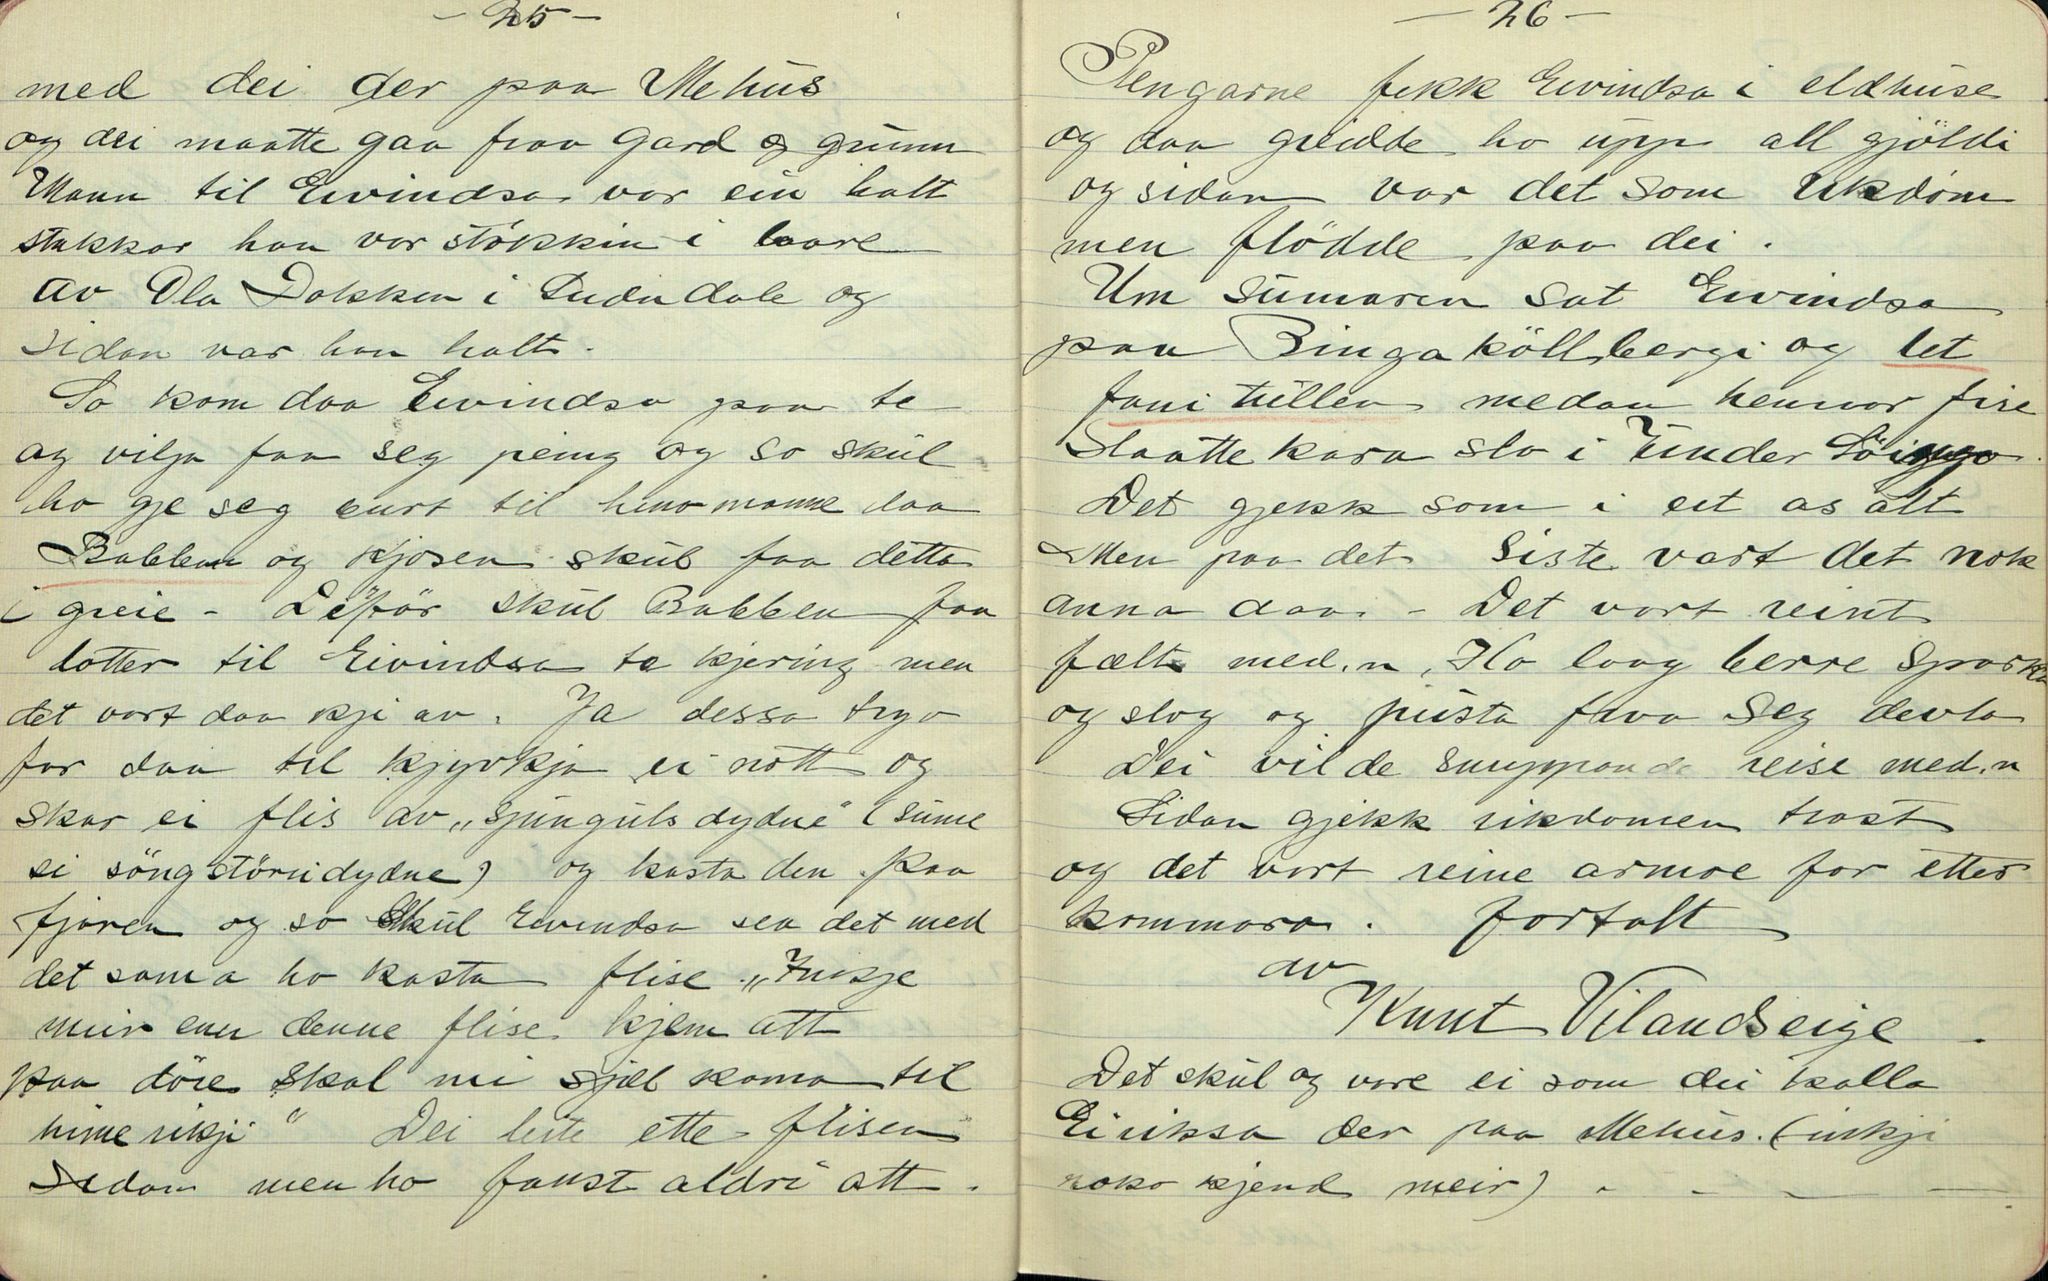 - 25 -
med dei der paa Mehus
og dei maatte gaa fraa gard og grunn
Mann til Eivindsa var ein halt
stakkar han var stökkin i laare
av Ola Dokken i Luindale og
sidan var han halt.
So kom daa Eivindsa paa te
og vilja faa seg peing og so skul
ho gje seg burt til hinmannen daa
Babben og Kjosen skul faa detta
i greie - Diför skul Babben faa
dotter til Eivindsa te kjering men
det vart daa kji av. Ja dessa tryo
for daa til kjyrkja ei nott og
skar ei flis av „sjungulsdydne" (sume
si söngstörudydne) og kasta den paa
fjoren og so skul Eivindsa sea det med
det sama ho kasta flise. „Inkje
meir enn denne flise kjem att
paa döre skal mi sjæl koma til
himerikji" Dei leita ette flisen
sidan men ho fanst aldri att.
- 26 -
Pengarne fekk Eivindsa i eldhuse
og daa greidde ho upp all gjöldi
og sidan var det som rikdom
men flödde paa dei.
Um sumaren sat Eivindsa
paa Bingaköllbergi og let
fani tullen medan hennar fire
slaattekara slo i Under
Det gjekk som i eit as alt
Men paa det siste vart det nok
anna daa. - Det vart reint
fælt med.n, Ho laag berre sparka
og slog og pusta fraa seg devla
Dei vilde snuppande reise med.n
Sidan gjekk rikdomen trast
og det vart reine armoe for etter
kommara. fortalt
av
Knut Vilandseige.
Det skul og vore ei som dei kalla
Eiriksa der paa Mehus. (inkji
noko kjend meir) . - - -